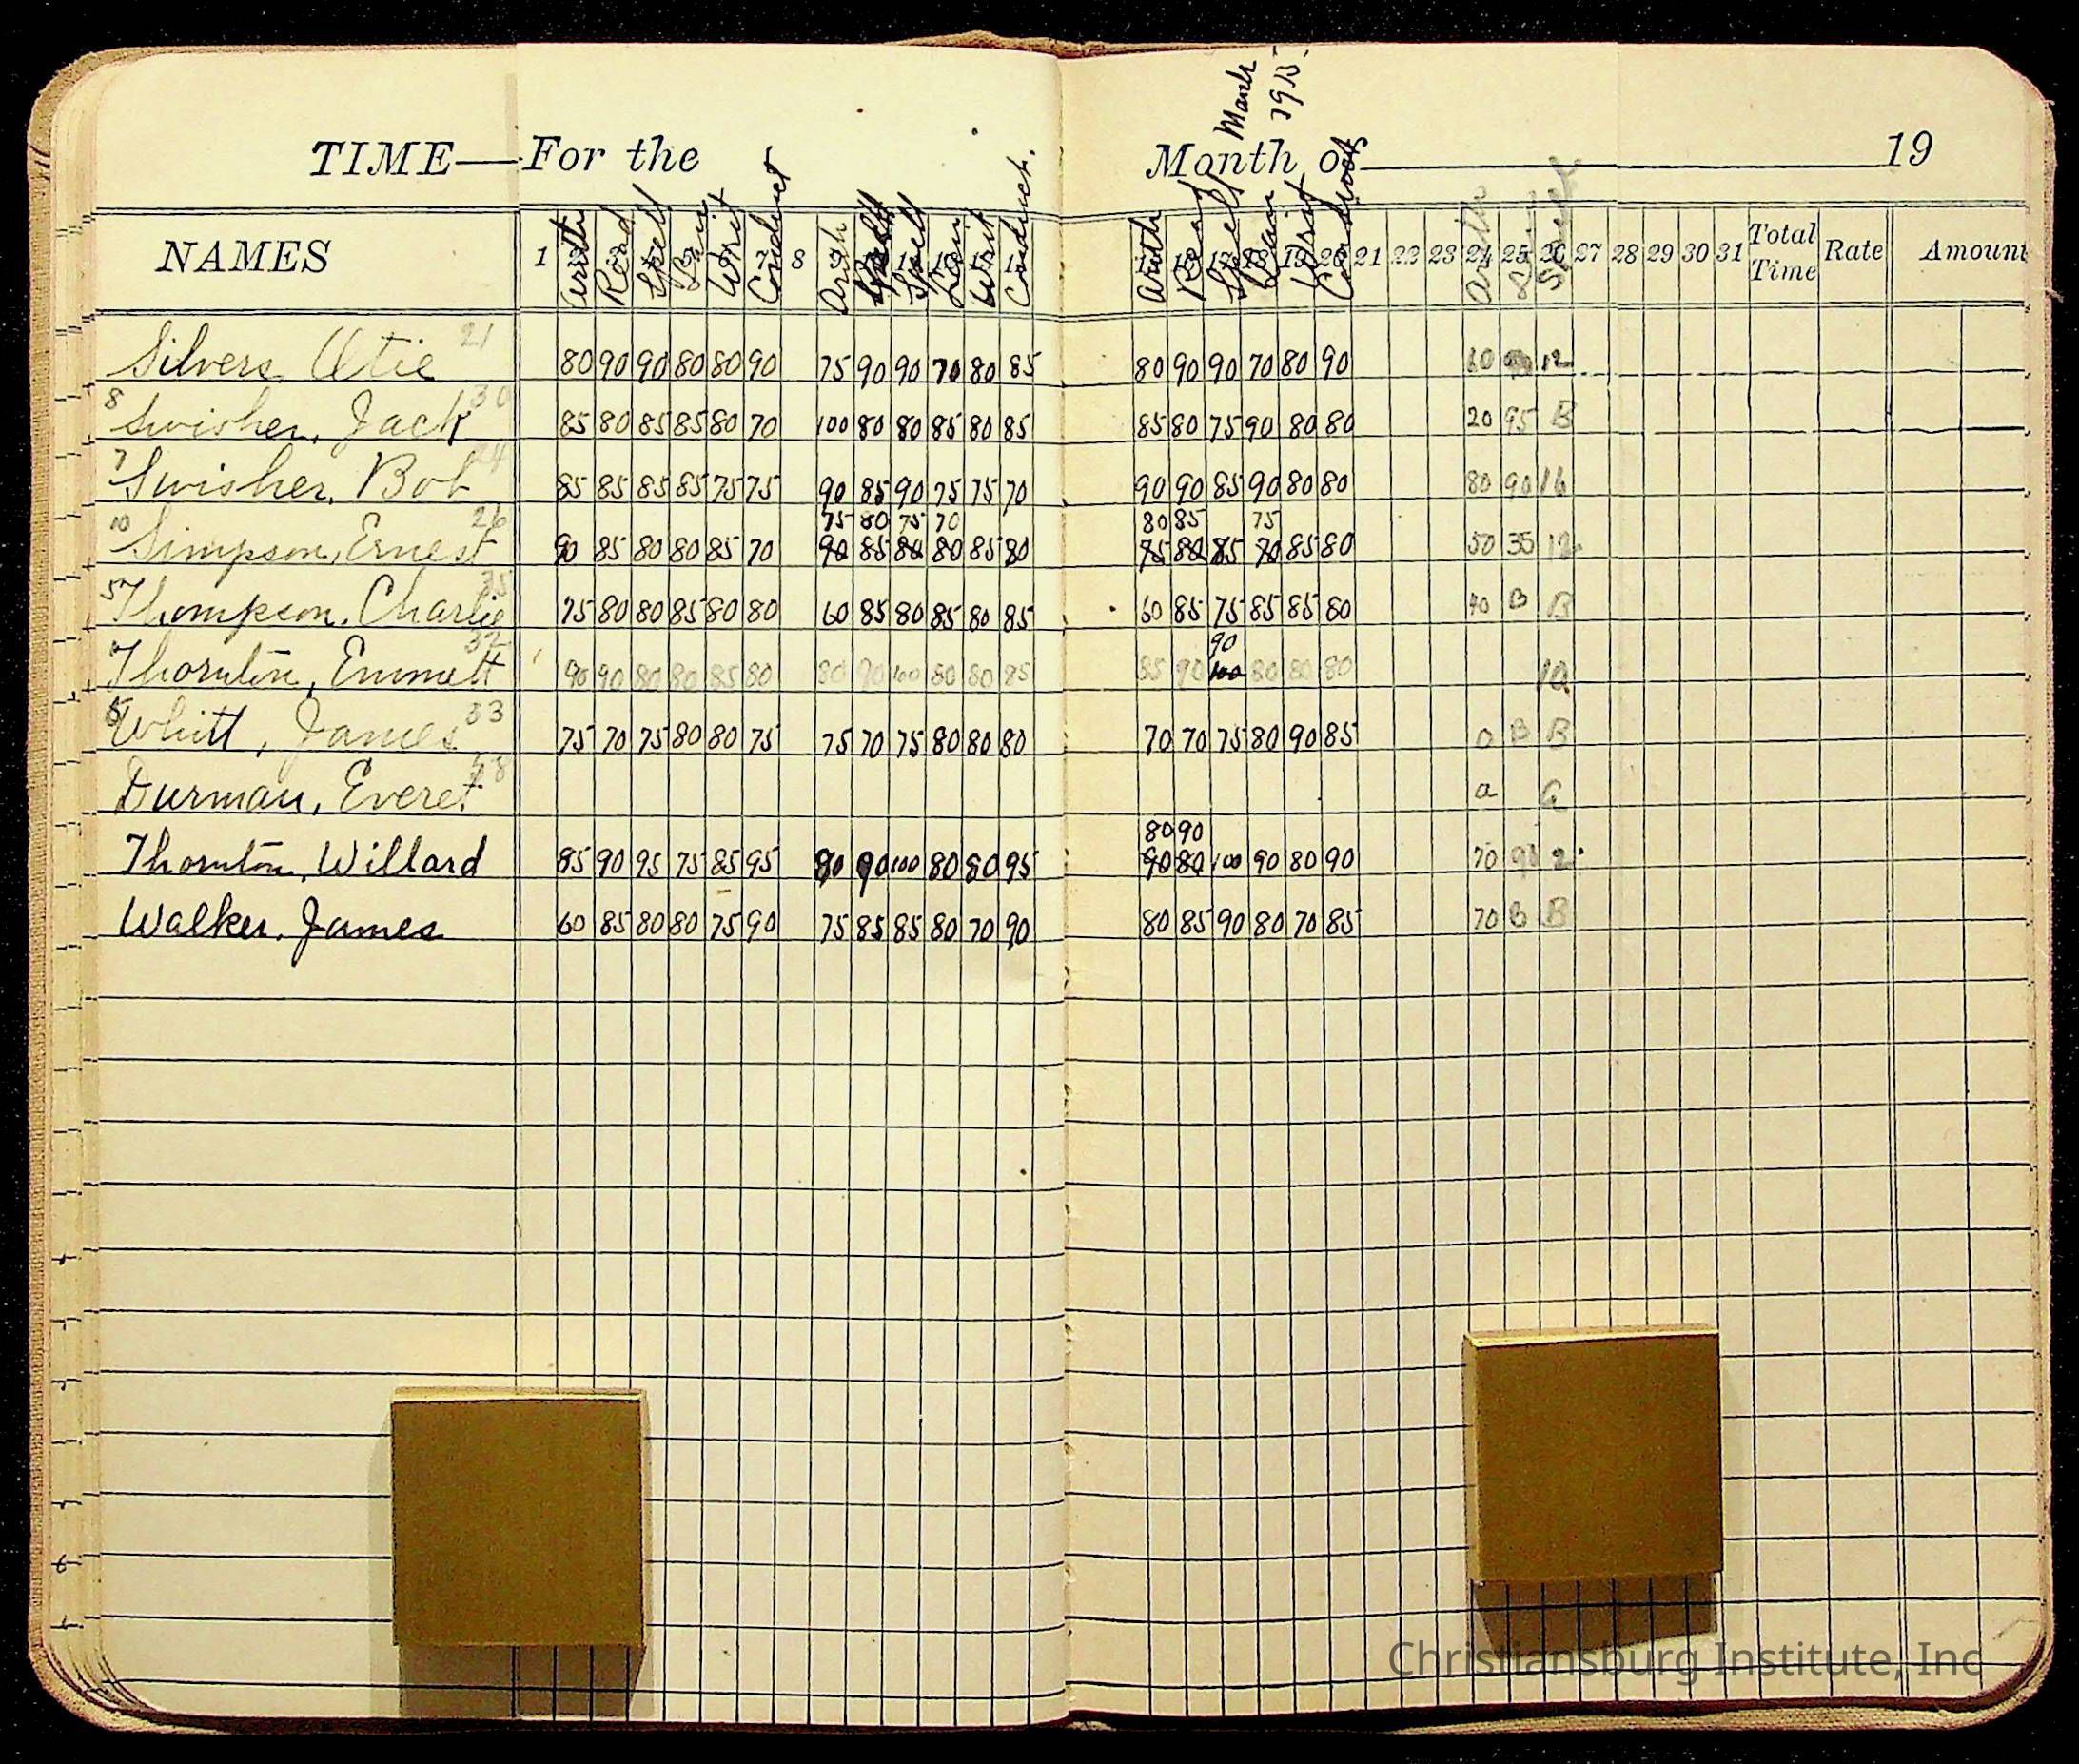 March 1915
TIME—For the Month of 19
NAMES 1 Arith Read Spell Writ Conduct 8 Arith Spell Writ Conduct. Arith Read Spell Writ Conduct 21 22 23 24 Arith 25 26 27 28 29 30 31 Total Time Rate Amount
Silvers Otie 21 80 90 90 80 80 90 75 90 90 70 80 85 80 90 90 70 80 90 60 12
8 Swisher, Jack 30 85 80 85 85 80 70 100 80 80 85 80 85 85 80 75 90 80 80 20 95 B
7 Swisher, Bob 24 85 85 85 85 75 75 90 85 90 75 75 70 90 90 85 90 80 80 80 90 16
75 80 75 70 80 85 75
10 Simpson, Ernest 26 90 85 80 80 85 70 90 85 80 80 85 80 75 80 85 70 85 80 50 35 12
5 Thompson, Charlie 35 75 80 80 85 80 80 60 85 80 85 80 85 60 85 75 85 85 80 40 B B
90
Thornton, Emmett 32 90 90 80 80 85 80 80 90 100 80 80 85 85 90 100 80 80 80 10
Whitt, James 33 75 70 75 80 80 75 75 70 75 80 80 80 70 70 75 80 90 85 0 B B
Durman, Everet a a
80 90
Thornton, Willard 85 90 95 75 85 95 80 90 100 80 80 95 90 80 100 90 80 90 70 2
Walker, James 60 85 80 80 75 90 75 85 85 80 70 90 80 85 90 80 70 85 70 B B
Christiansburg Institute, Inc